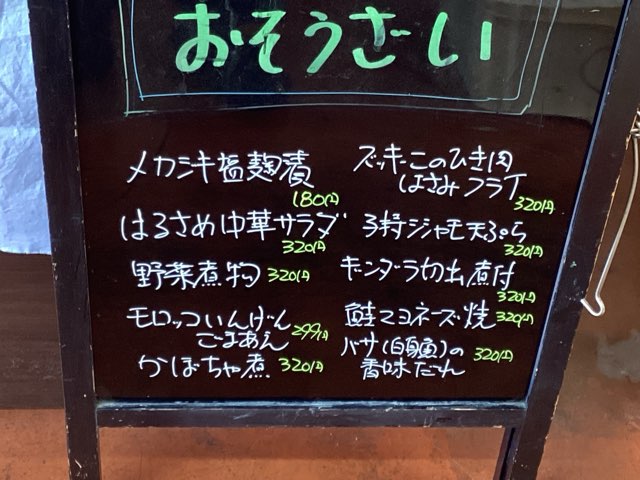 おそうざい
メカジキ塩麹漬
180円
はるさめ中華サラダ
320円
野菜煮物 320円
モロッコいんげん
ごまあえ 299円
かぼちゃ煮 320円
ズッキーニのひき肉
はさみフライ
320円
子持シシャモ天ぷら
320円
キンダラ切出煮付
320円
鮭マヨネーズ焼 320円
バサ(白身魚)の
香味だれ 320円